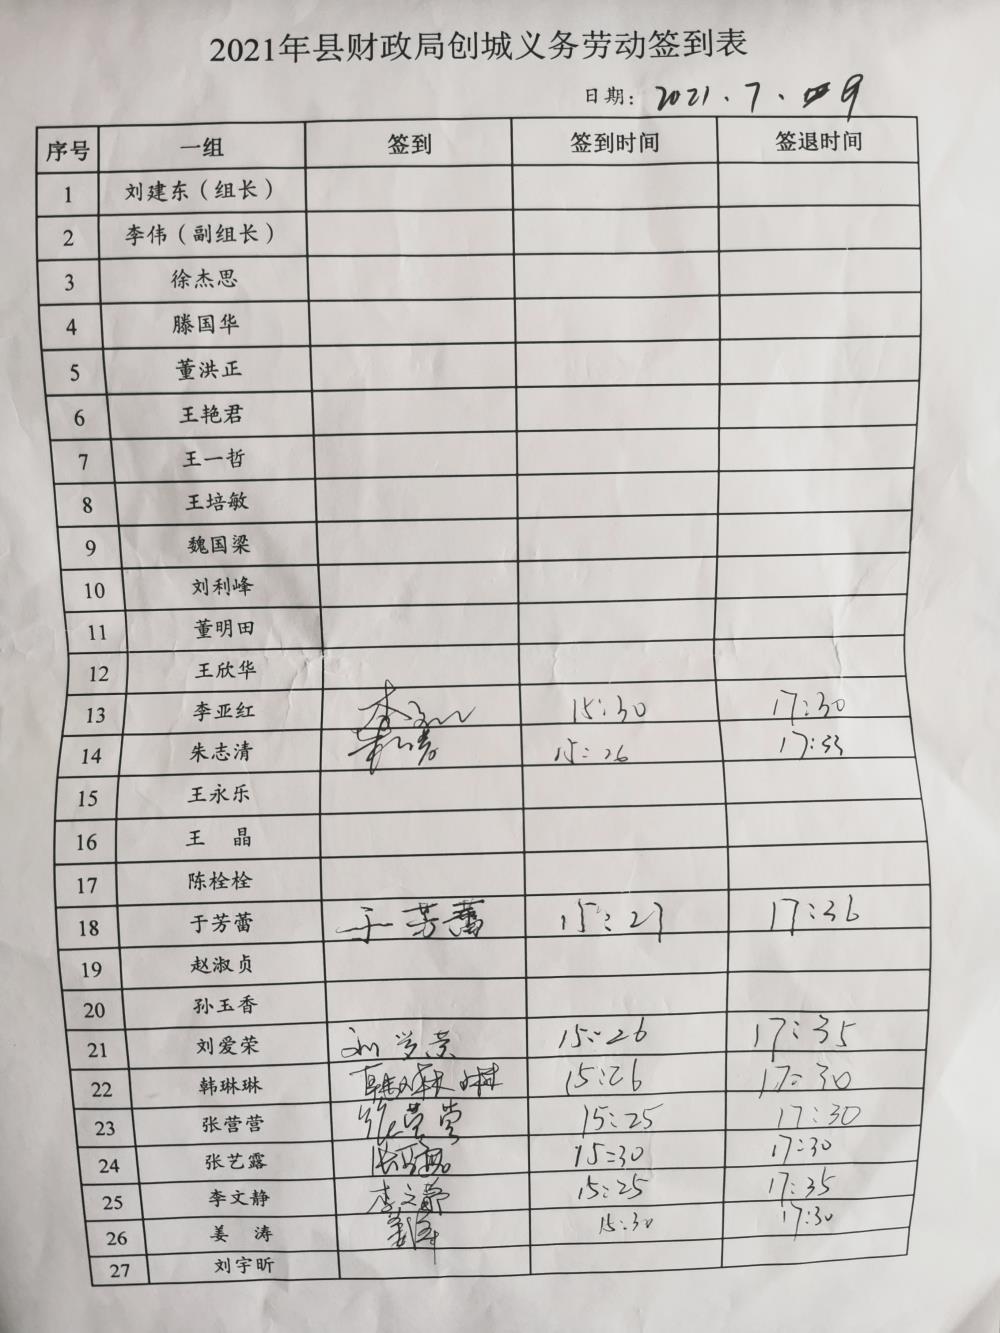 2021年县财政局创城义务劳动签到表
日期: 2021.7.9
序号 一组 签到 签到时间 签退时间
1 刘建东（组长）
2 李伟（副组长）
3 徐杰思
4 滕国华
5 董洪正
6 王艳君
7 王一哲
8 王培敏
9 魏国梁
10 刘利峰
11 董明田
12 王欣华
13 李亚红 15:30 17:30
14 朱志清 15:26 17:33
15 王永乐
16 王 晶
17 陈栓栓
18 于芳蕾 于芳蕾 15:27 17:36
19 赵淑贞
20 孙玉香
21 刘爱荣 刘爱荣 15:26 17:35
22 韩琳琳 韩琳琳 15:26 17:30
23 张营营 张营营 15:25 17:30
24 张艺露 15:30 17:30
25 李文静 李文静 15:25 17:35
26 姜 涛 15:30 17:30
27 刘宇昕